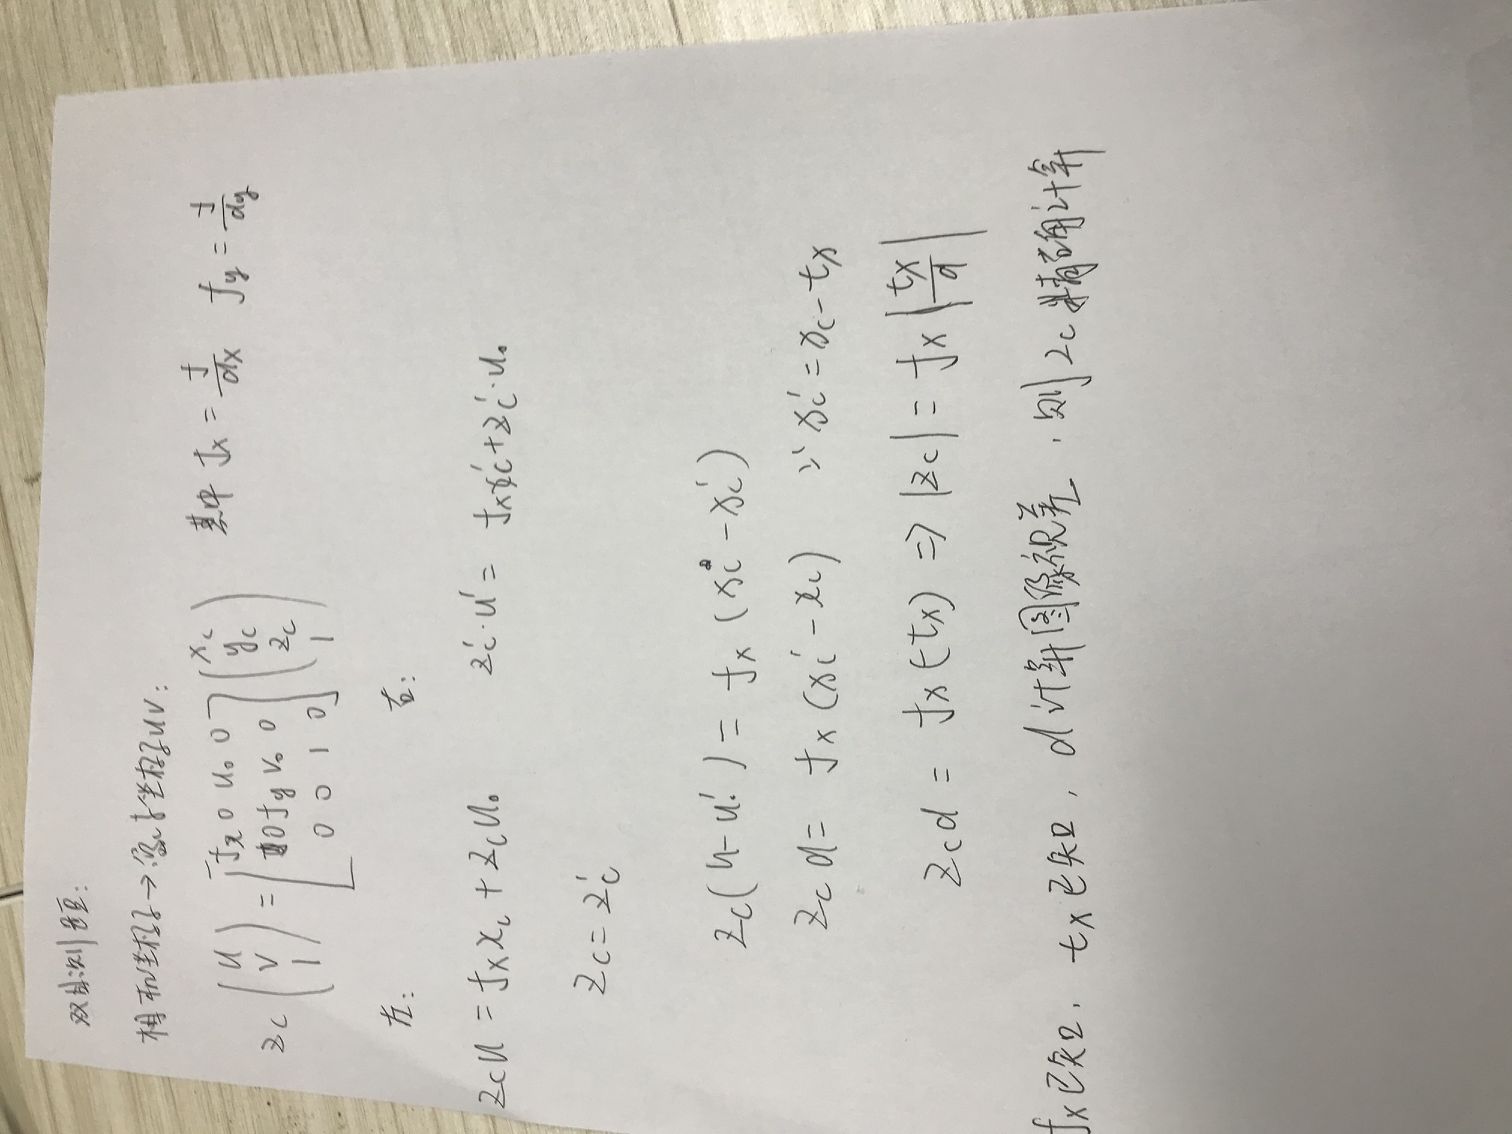 双目测距:
相机坐标系→像素坐标系UV:
Zc (u v 1) = [fx 0 u₀ 0 0 fy v₀ 0 0 0 1 0] (xc yc zc 1) 其中 fx = f/dx fy = f/dy
左: 右:
Zc u = fx xc + Zc u₀ Zc'·u' = fx xc' + Zc'·u₀
Zc = Zc'
Zc(u-u') = fx (xc - xc')
Zc d = fx (xc' - xc) ∵ xc' = xc - tx
Zc d = fx(-tx) ⇒ |Zc| = fx |tx/d|
fx已知, tx已知, d计算图像视差, 则Zc精确计算